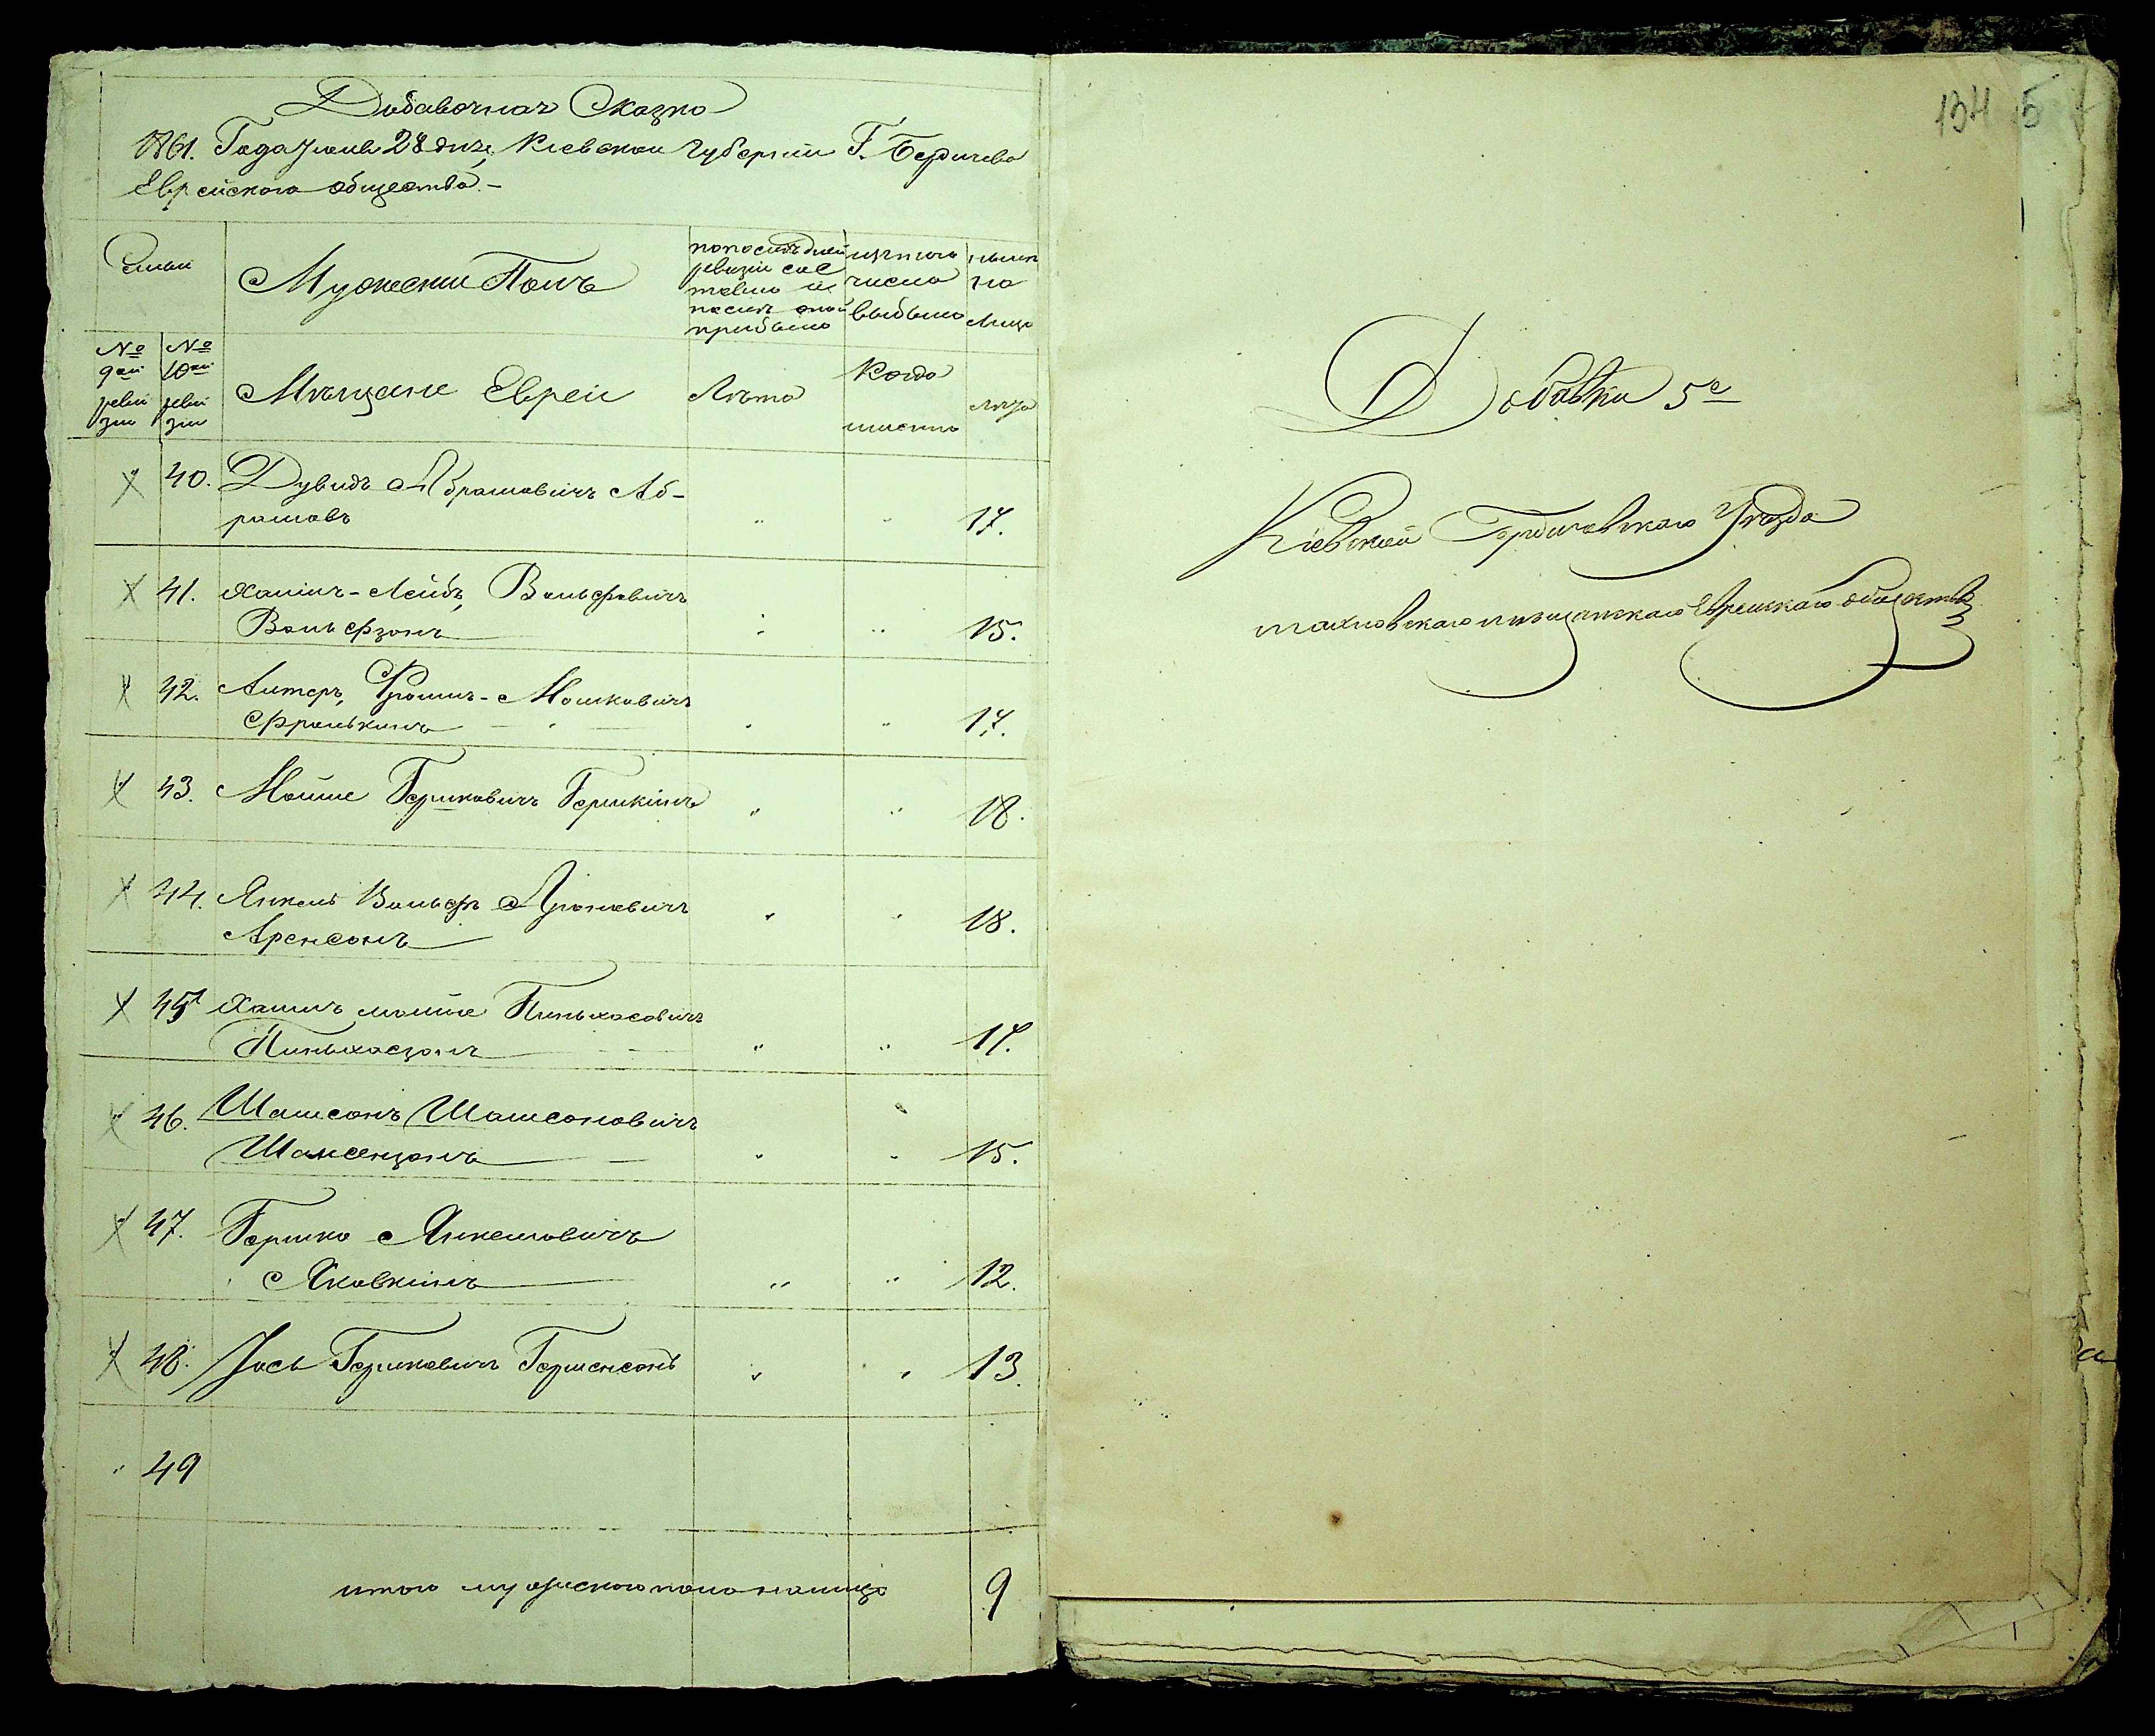 Добавочная Сказка
1861. Года Июня 28 дня, Киевской Губернии Г. Бердичева
Еврейского общества. -
Семьи
Мужески Полъ
по последней
ревизіи сос
тояло и
после оной
прибыло
изъ того
числа
выбыло
ныне
на
лицо
№ 9ой ревизіи
№ 10ой ревизіи
Мещане Евреи
Лета
Когда
именно
лета
40. Дувидъ Абрамовичъ Аб-
рамовъ " " 17.
41. Хаимъ-Лейбъ Вольфовичъ
Вольфзонъ " " 15.
42. Алтеръ, Фроимъ-Мошковичъ
Фролькинъ " " 17.
43. Мойше Гершковичъ Гершкинъ " " 18.
44. Янкель Вольфъ Ароновичъ
Аренсонъ " " 18.
45 Хаимъ мойше Пиньхасовичъ
Пиньхасзонъ " " 17.
46. Шамсонъ Шамсоновичъ
Шамсензонъ " " 15.
47. Гершко Янкелевичъ
Яковкинъ " " 12.
48. Іось Гершковичъ Гершенсонъ " " 13.
" 49
итого мужеского пола на лицо 9
134 5
Добавки 5е
Кіевской Бердичевскаго Уезда
махновскаго мещанскаго Еврейскаго общества